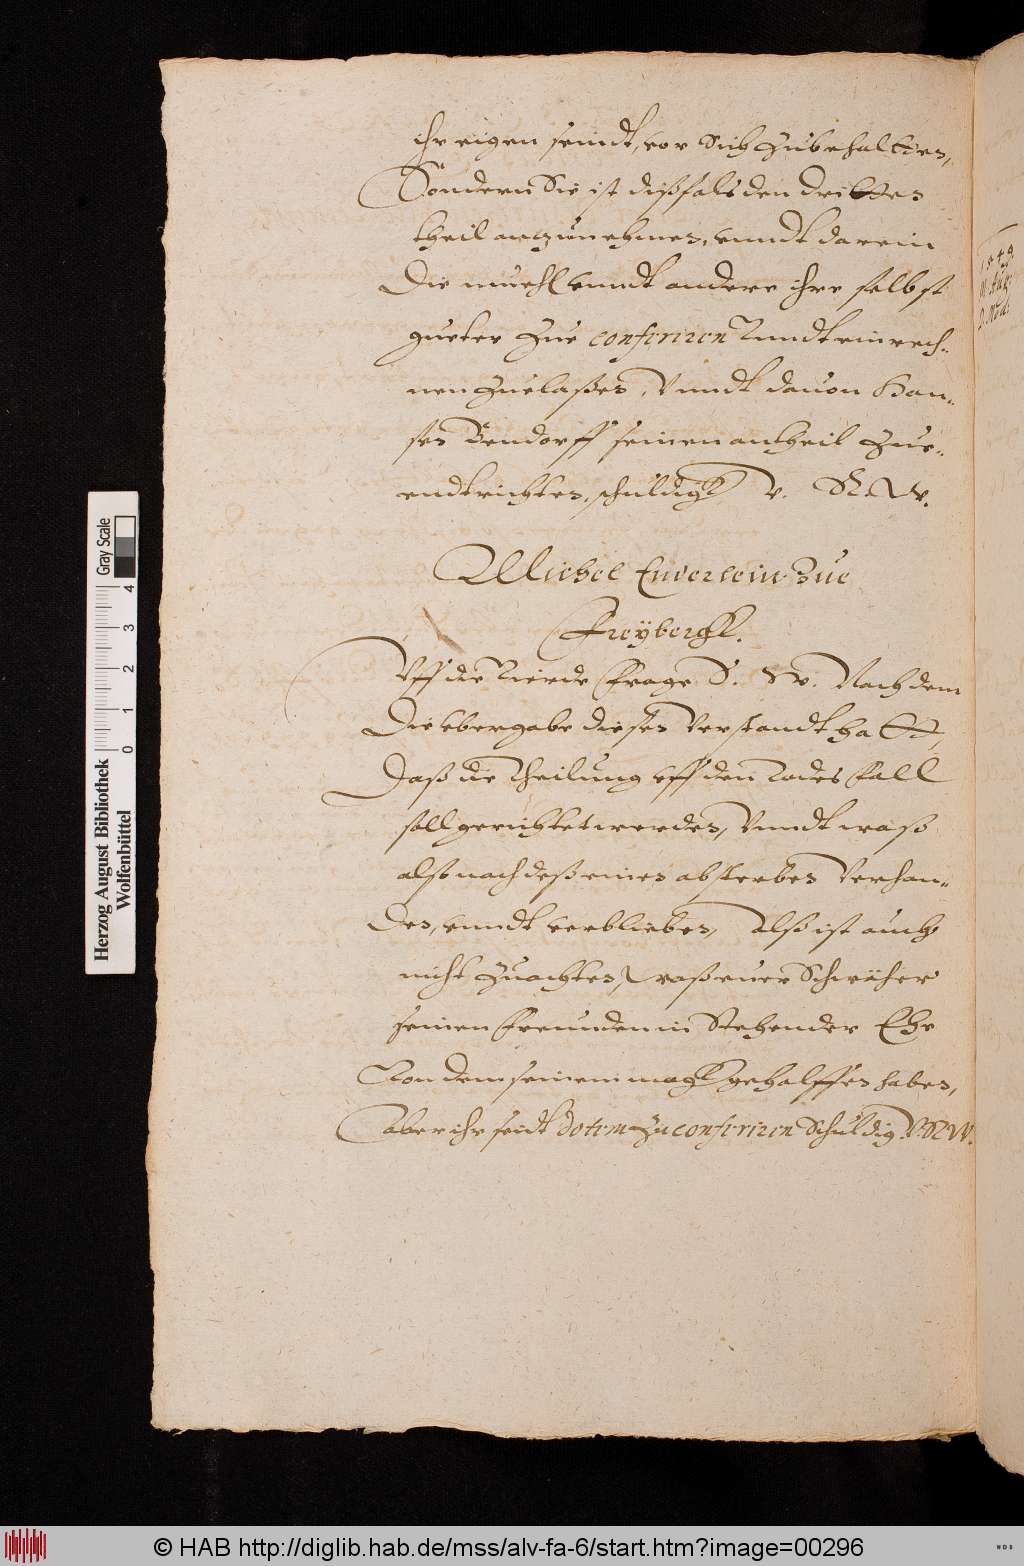 ihr eigen seindt, vor sich zubehalten,
Sondern Sie ist dißfals den dritten
theil anzunehmen, vnndt darein
die muehl vnndt andere ihre selbst
gueter zue conferiren Vnndt einrech-
nen zuelaßen, Vnndt dauon Han-
sen Bendorff seinen antheil zue-
endtrichten, schuldigk V. R. W.
Michel Enderlein zue
Freÿbergk.
Vff die Vierde Frage S. W. Nachdem
die vbergabe diesen Verstandt hatt,
daß die Theilung vff den Todes Fall
soll gerichtet werden, Vnndt waß
also nach deß einen absterben Verhan-
den, vnndt verblieben, Alß ist auch
nicht zuachten, waß euer Schweher
seinen Freunden in Stehender Ehe
Von dem seinem magk geholffen haben,
aber ihr seidt dotem zu conferiren Schuldig V. R. W.
1549
11. Aug:
2. Nou:
Herzog August Bibliothek
Wolfenbüttel
0 1 2 3 4
Gray Scale
© HAB http://diglib.hab.de/mss/alv-fa-6/start.htm?image=00296
WDB